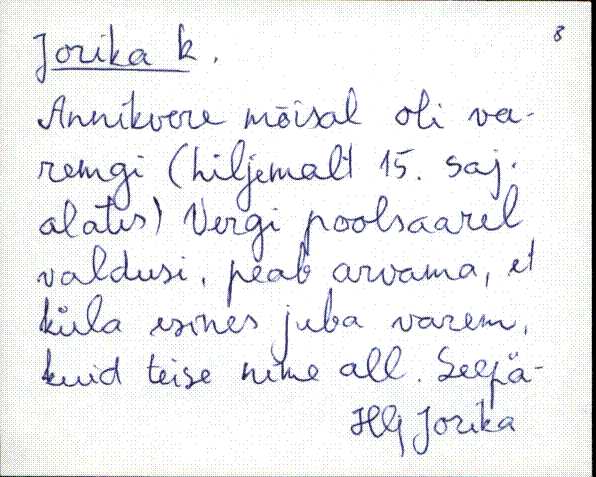 Jorika k.
8
Annikvere mõisal oli va-
remgi (hiljemalt 15. saj.
alates) Vergi poolsaarel
valdusi, peab arvama, et
küla esines juba varem,
kuid teise nime all. Seepä-
Jorika